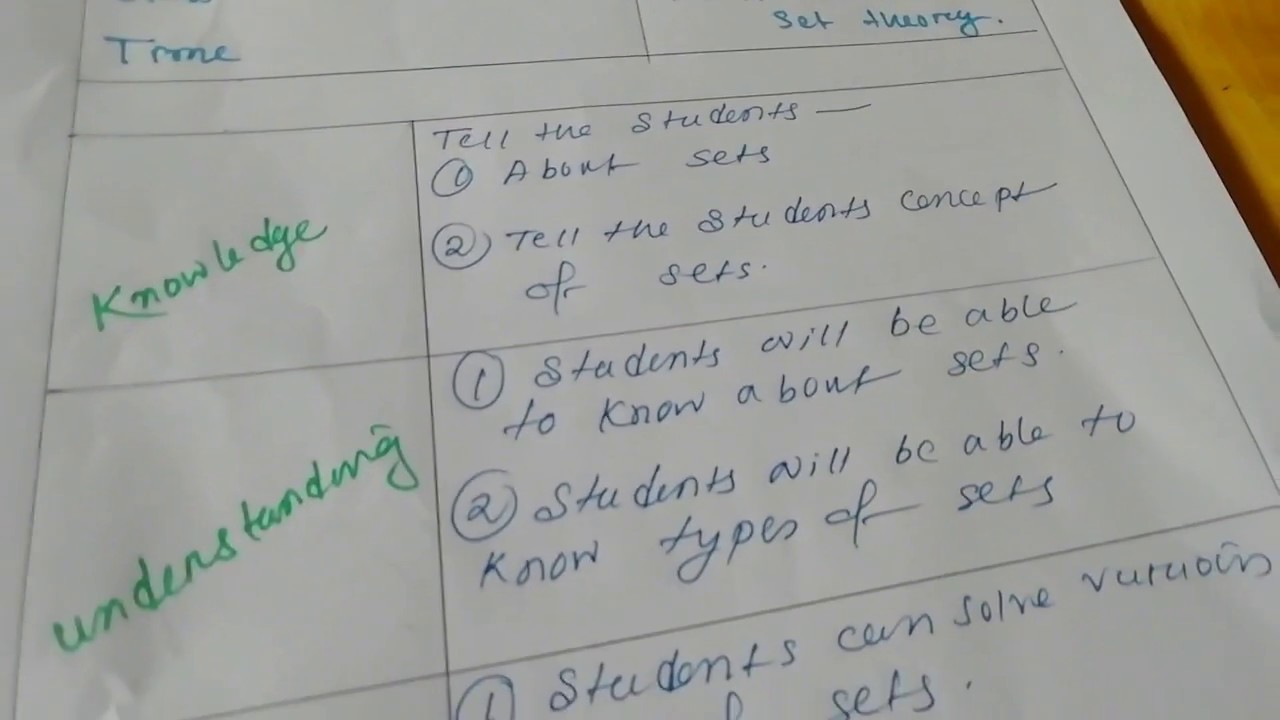 Time
set theory.
Tell the students —
① About sets
② Tell the students concept
of sets.
Knowledge
① Students will be able
to know about sets.
② Students will be able to
know types of sets
understanding
① Students can solve
sets.